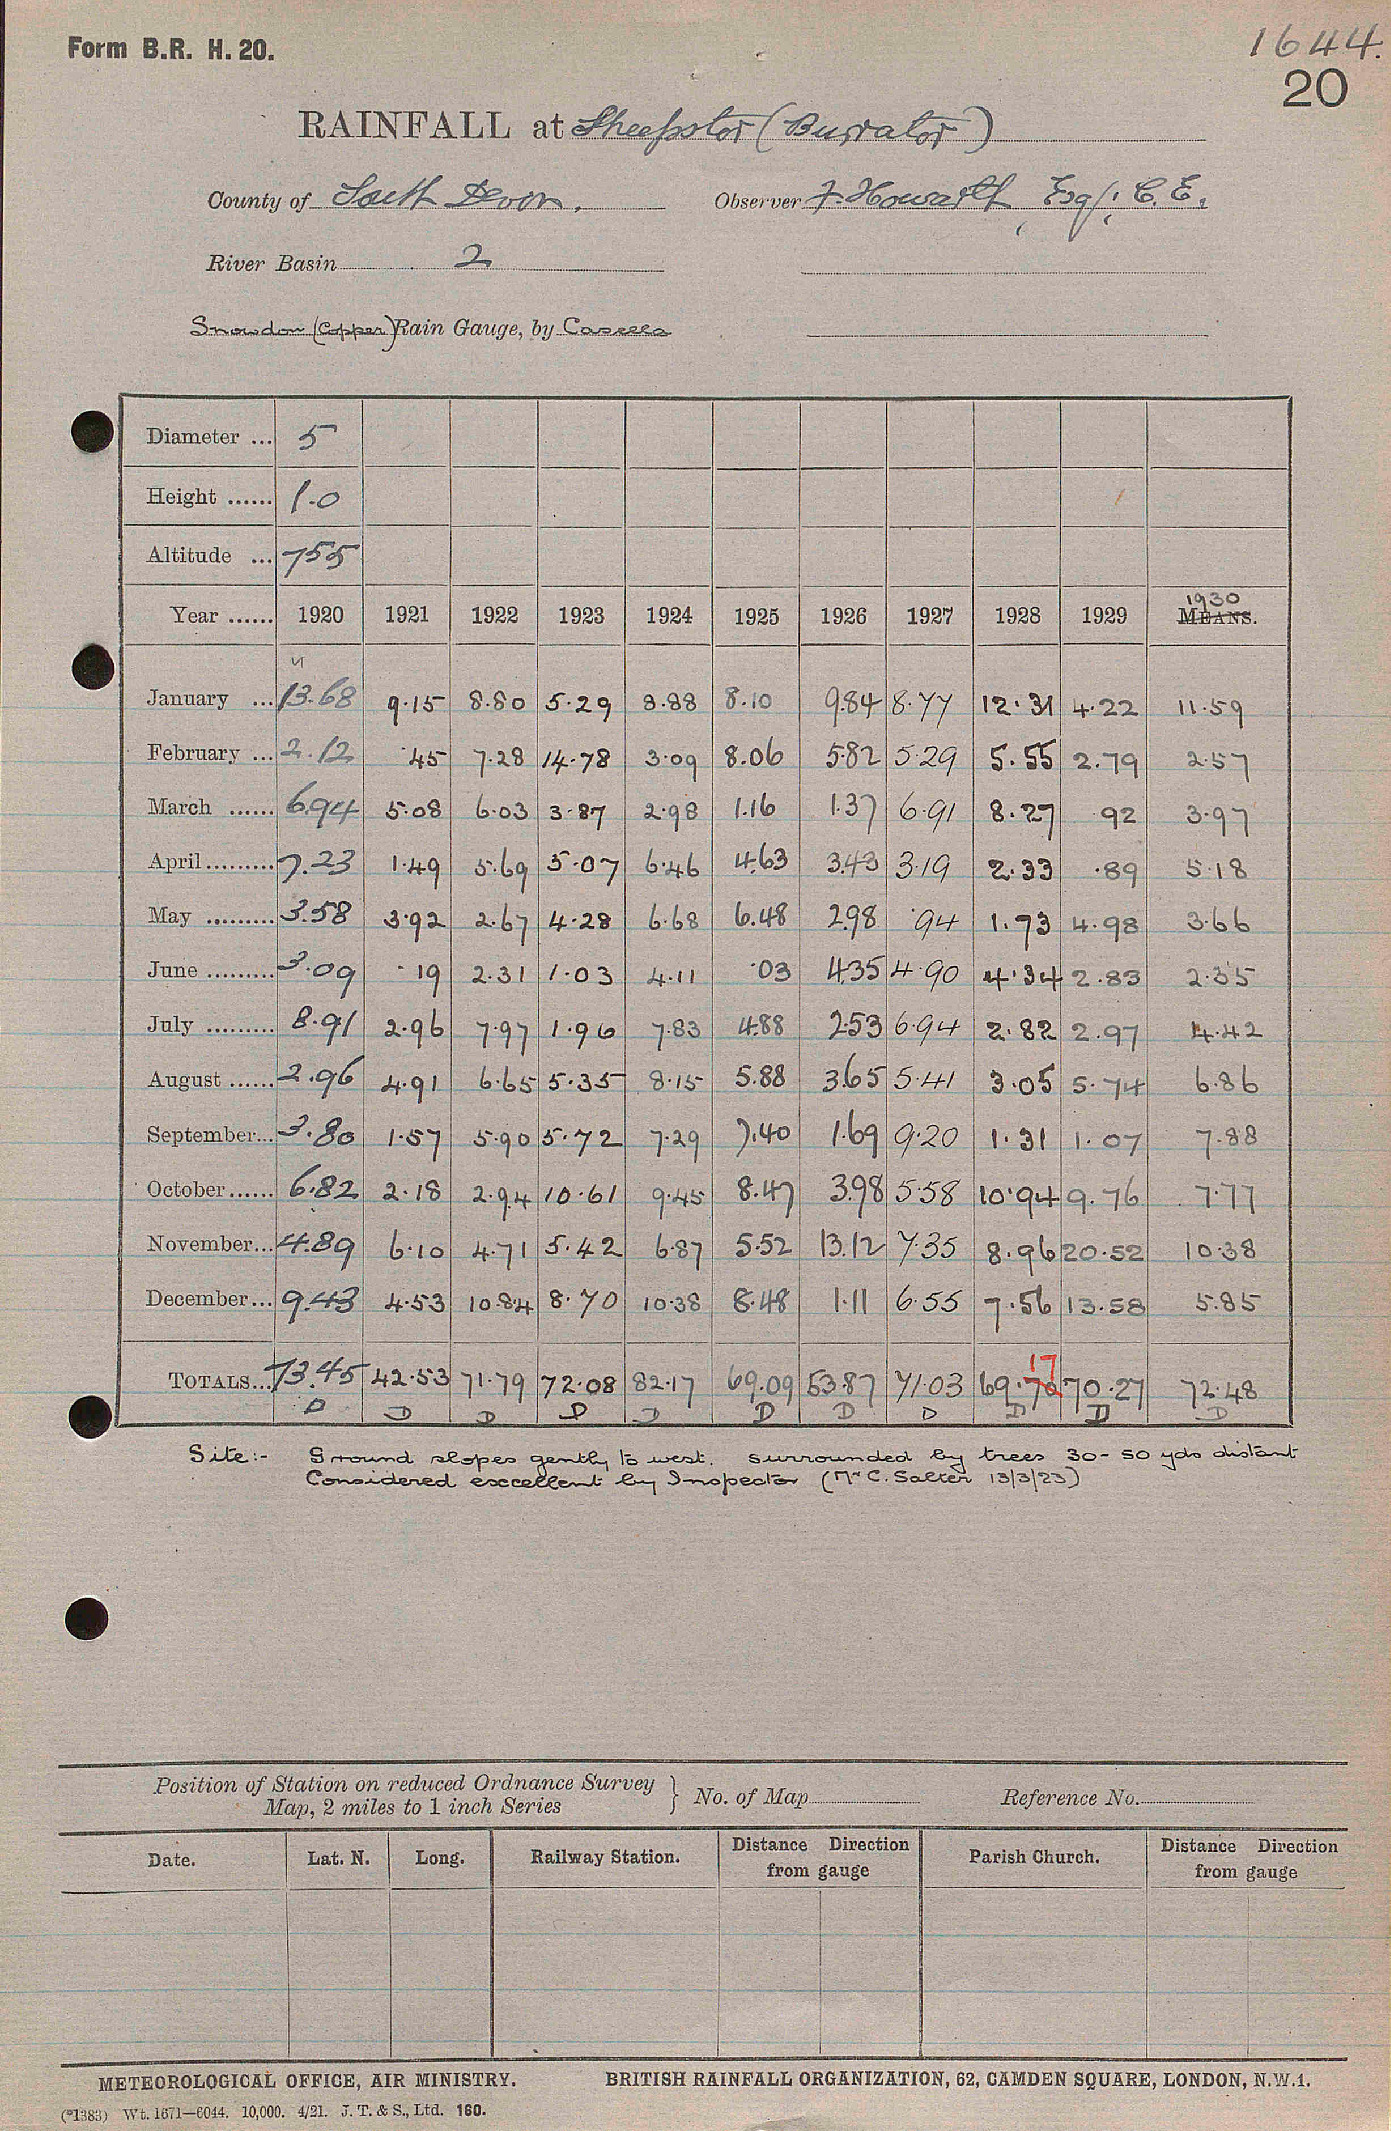 Form B.R. H. 20.
1644.
20
RAINFALL at Sheepstor (Burrator)
County of South Devon. Observer F. Howarth, Esq., C.E.
River Basin 2
Snowdon (Copper) Rain Gauge, by Casella
Diameter ... 5
Height ...... 1.0
Altitude ... 755
Year ...... 1920 1921 1922 1923 1924 1925 1926 1927 1928 1929 1930 MEANS.
January ... 13.68 9.15 8.80 5.29 8.88 8.10 9.84 8.77 12.31 4.22 11.59
February ... 2.12 .45 7.28 14.78 3.09 8.06 5.82 5.29 5.55 2.79 2.57
March ...... 6.94 5.08 6.03 3.87 2.98 1.16 1.37 6.91 8.27 .92 3.97
April ......... 7.23 1.49 5.69 5.07 6.46 4.63 3.43 3.19 2.33 .89 5.18
May ......... 3.58 3.92 2.67 4.28 6.68 6.48 2.98 .94 1.73 4.98 3.66
June ......... 3.09 .19 2.31 1.03 4.11 .03 4.35 4.90 4.34 2.83 2.35
July ......... 8.91 2.96 7.97 1.96 7.83 4.88 2.53 6.94 2.82 2.97 4.42
August ...... 2.96 4.91 6.65 5.35 8.15 5.88 3.65 5.41 3.05 5.74 6.86
September... 3.80 1.57 5.90 5.72 7.29 7.40 1.69 9.20 1.31 1.07 7.88
October...... 6.82 2.18 2.94 10.61 9.45 8.47 3.98 5.58 10.94 9.76 7.77
November... 4.89 6.10 4.71 5.42 6.87 5.52 13.12 7.35 8.96 20.52 10.38
December... 9.43 4.53 10.84 8.70 10.38 8.48 1.11 6.55 7.56 13.58 5.85
17
TOTALS... 73.45 42.53 71.79 72.08 82.17 69.09 53.87 71.03 69.70 70.27 72.48
D D D D D D D D D D D
Site:- Ground slopes gently to west. surrounded by trees 30-50 yds distant
Considered excellent by Inspector (Mr C. Salter 13/3/23)
Position of Station on reduced Ordnance Survey
Map, 2 miles to 1 inch Series } No. of Map Reference No.
Date. Lat. N. Long. Railway Station. Distance Direction from gauge Parish Church. Distance Direction from gauge
METEOROLOGICAL OFFICE, AIR MINISTRY. BRITISH RAINFALL ORGANIZATION, 62, CAMDEN SQUARE, LONDON, N.W.1.
(*1383) Wt. 1671—6044. 10,000. 4/21. J. T. & S., Ltd. 160.